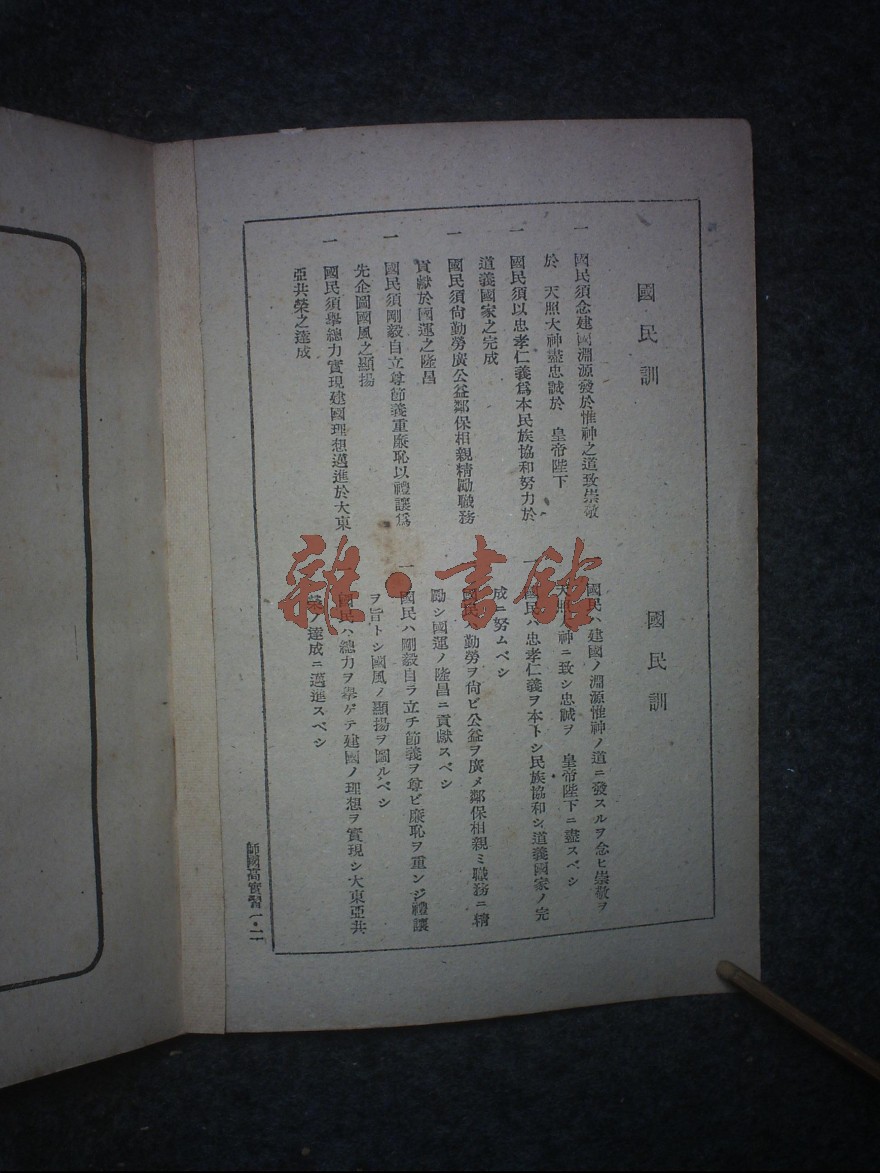 國民訓
一 國民須念建國淵源發於惟神之道致崇敬
於 天照大神盡忠誠於 皇帝陛下
一 國民須以忠孝仁義爲本民族協和努力於
道義國家之完成
一 國民須尙勤勞廣公益鄰保相親精勵職務
貢獻於國運之隆昌
一 國民須剛毅自立尊節義重廉恥以禮讓爲
先企圖國風之顯揚
一 國民須擧總力實現建國理想邁進於大東
亞共榮之達成
國民訓
國民ハ建國ノ淵源惟神ノ道ニ發スルヲ念ヒ崇敬ヲ
天照大神ニ致シ忠誠ヲ 皇帝陛下ニ盡スベシ
一 國民ハ忠孝仁義ヲ本トシ民族協和シ道義國家ノ完
成ニ努ムベシ
國民ハ勤勞ヲ尙ビ公益ヲ廣メ鄰保相親ミ職務ニ精
勵シ國運ノ隆昌ニ貢獻スベシ
一 國民ハ剛毅自ラ立チ節義ヲ尊ビ廉恥ヲ重ンジ禮讓
ヲ旨トシ國風ノ顯揚ヲ圖ルベシ
國民ハ總力ヲ擧ゲテ建國ノ理想ヲ實現シ大東亞共
榮ノ達成ニ邁進スベシ
師國高實習一・二
雜·書館